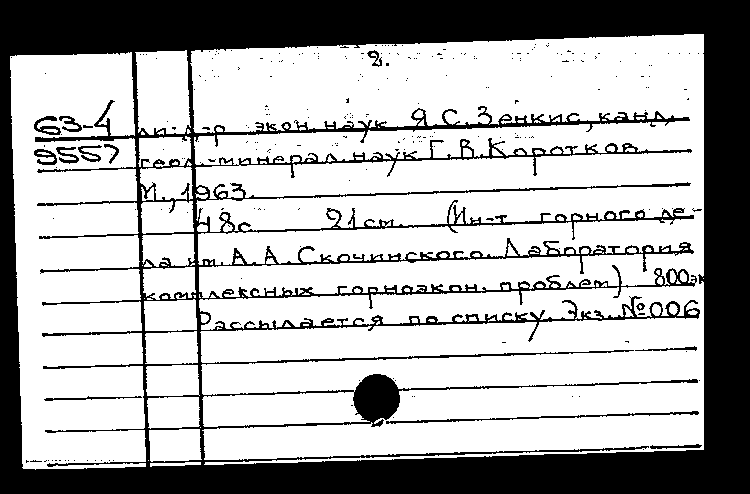 2.
63-4 ли: д-р экон. наук Я. С. Зенкис, канд.
9557 геол.-минерал. наук Г. В. Коротков.
М., 1963.
48с 21см. (Ин-т горного де-
ла им. А. А. Скочинского. Лаборатория
комплексных горноэкон. проблем) 800эк
Рассылается по списку. Экз. №006